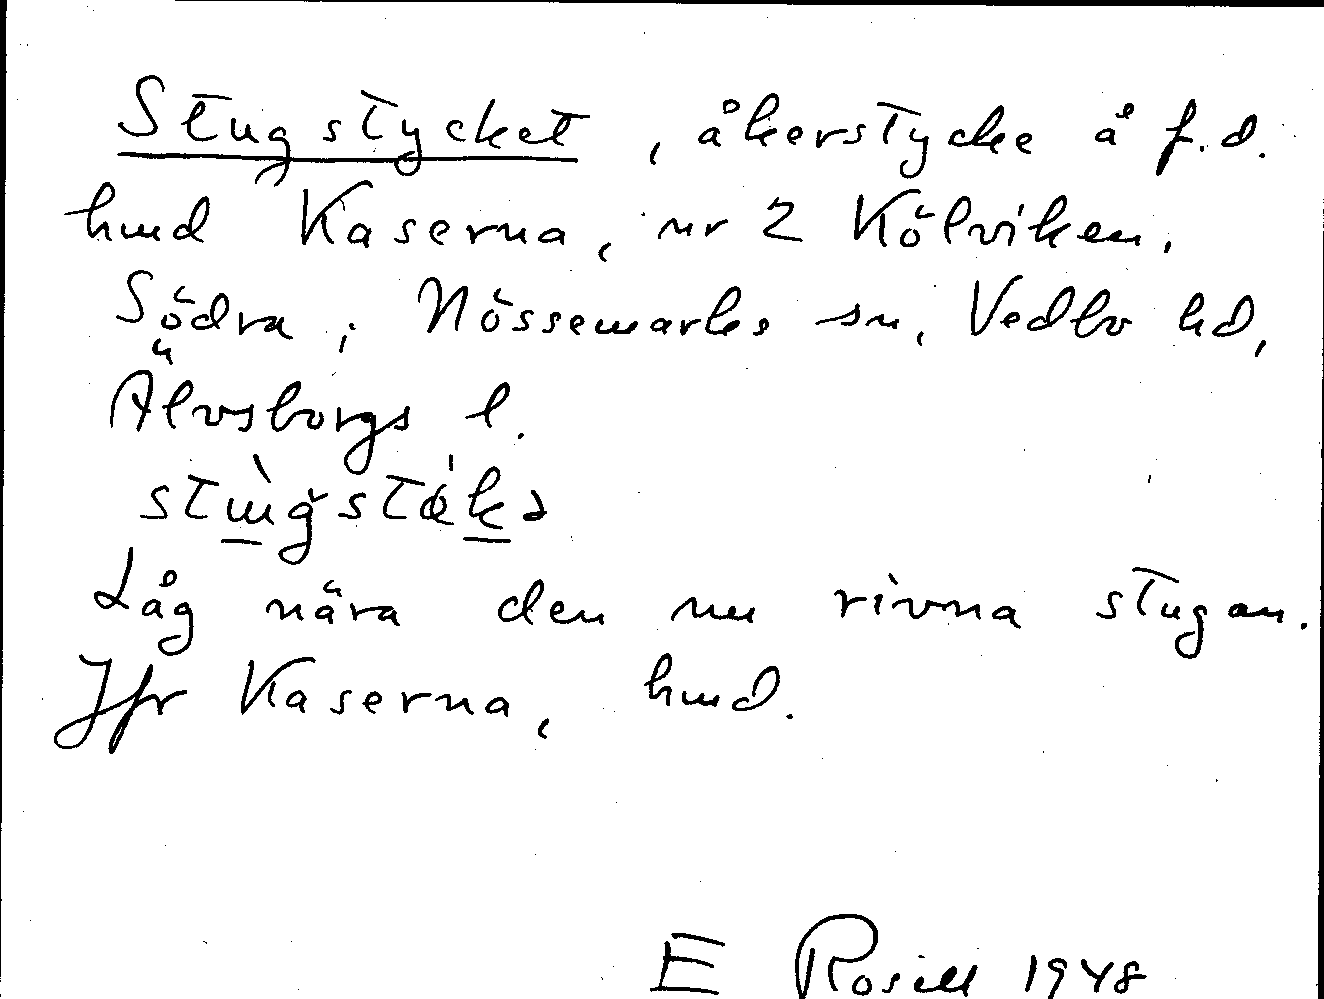 Stugstycket, åkerstycke å f.d.
hmd Kaserna, nr 2 Kölviken,
Södra, i Nössemarks sn, Vedbo hd,
Älvsborgs l.
Låg nära den nu rivna stugan.
Jfr Kaserna, hmd.
E Rosell 1948